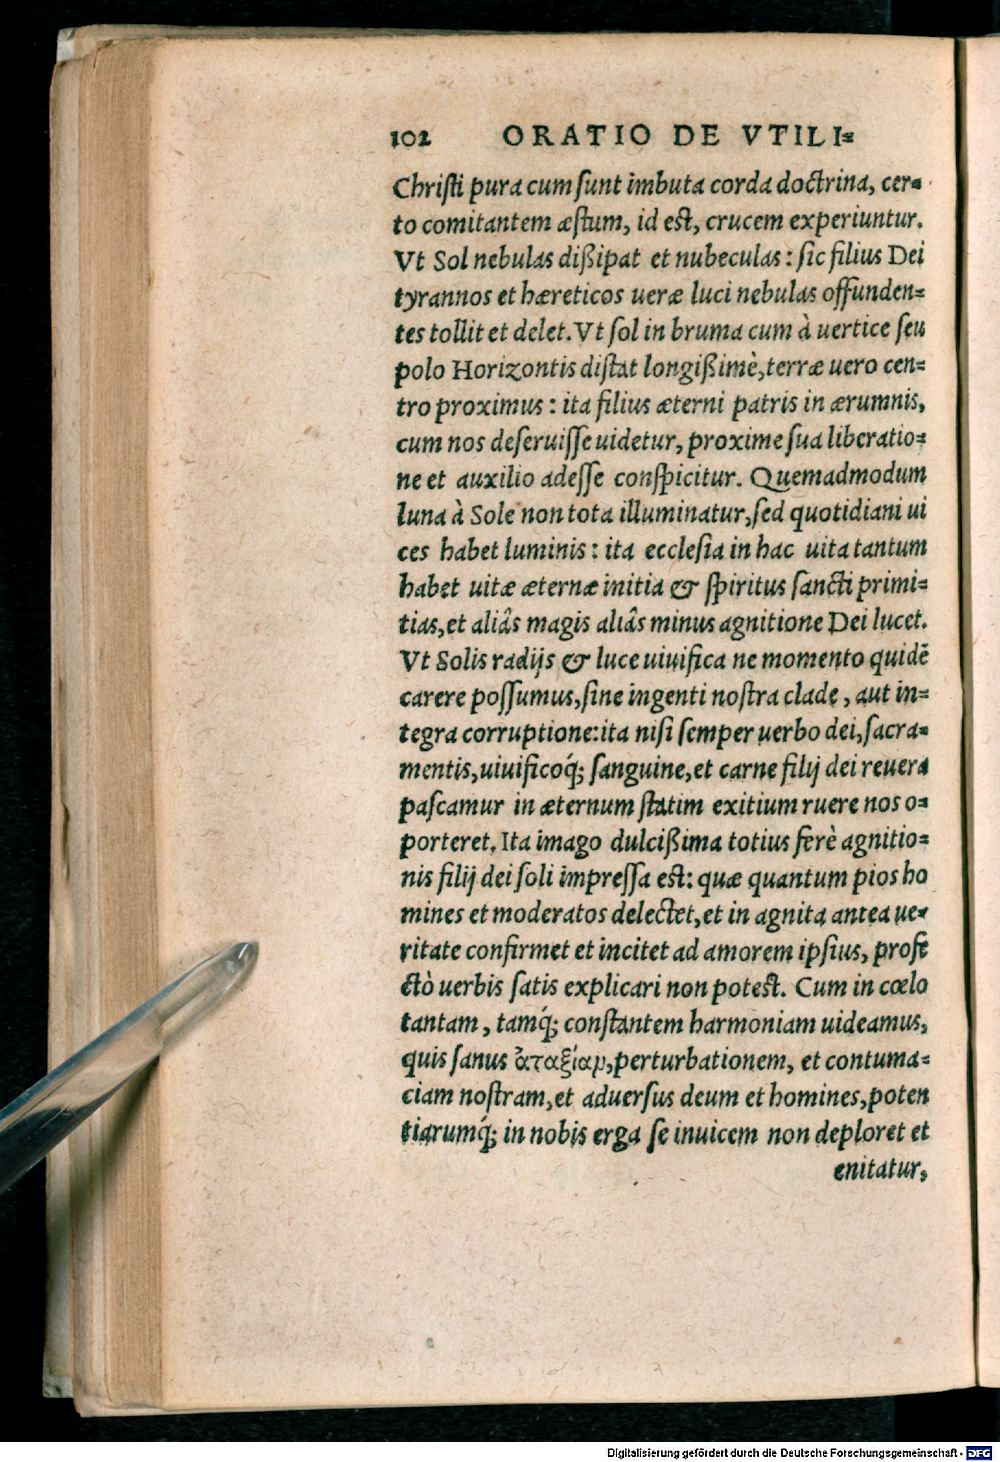 102 ORATIO DE VTILI=
Chriſti pura cum ſunt imbuta corda doctrina, cer=
to comitantem æſtum, id eſt, crucem experiuntur.
Vt Sol nebulas dißipat et nubeculas: ſic filius Dei
tyrannos et hæreticos ueræ luci nebulas offunden=
tes tollit et delet. Vt ſol in bruma cum à uertice ſeu
polo Horizontis diſtat longißimè, terræ uero cen=
tro proximus: ita filius æterni patris in ærumnis,
cum nos deſeruiſſe uidetur, proxime ſua liberatio=
ne et auxilio adeſſe conſpicitur. Quemadmodum
luna à Sole non tota illuminatur, ſed quotidiani ui
ces habet luminis: ita eccleſia in hac uita tantum
habet uitæ æternæ initia & ſpiritus ſancti primi=
tias, et aliâs magis aliâs minus agnitione Dei lucet.
Vt Solis radijs & luce uiuifica ne momento quidē
carere poſſumus, ſine ingenti noſtra clade, aut in=
tegra corruptione: ita niſi ſemper uerbo dei, ſacra=
mentis, uiuificoq́; ſanguine, et carne filij dei reuera
paſcamur in æternum ſtatim exitium ruere nos o=
porteret. Ita imago dulcißima totius ferè agnitio=
nis filij dei ſoli impreſſa eſt: quæ quantum pios ho
mines et moderatos delectet, et in agnita antea ue=
ritate confirmet et incitet ad amorem ipſius, profe
ctò uerbis ſatis explicari non poteſt. Cum in cœlo
tantam, tamq́; conſtantem harmoniam uideamus,
quis ſanus ἀταξίαν, perturbationem, et contuma=
ciam noſtram, et aduerſus deum et homines, poten
tiarumq́; in nobis erga ſe inuicem non deploret et
enitatur,
Digitalisierung gefördert durch die Deutsche Forschungsgemeinschaft - DFG